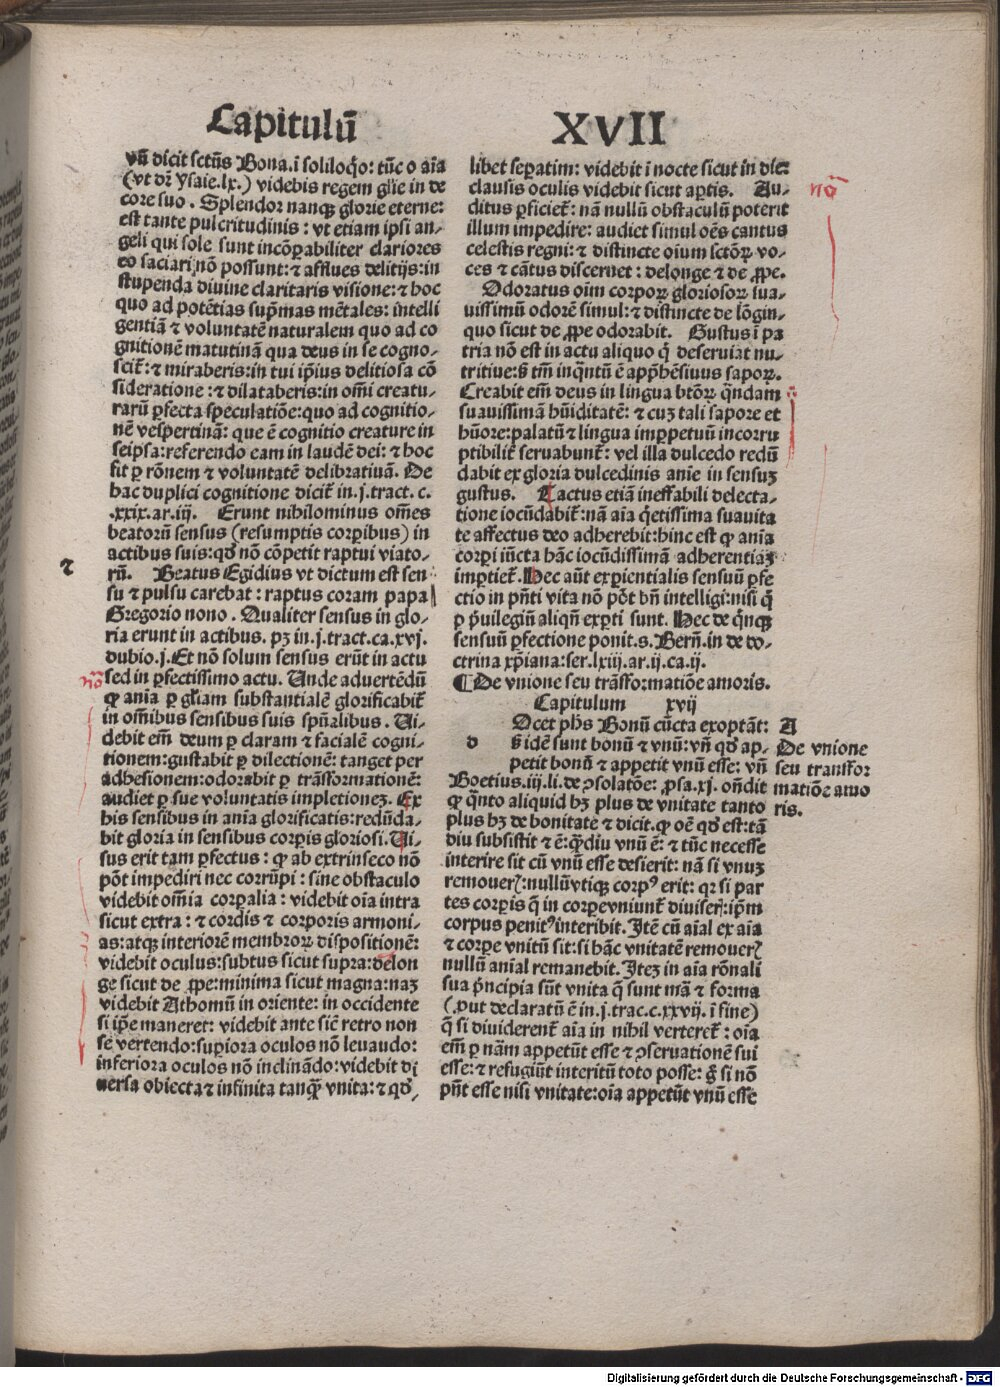 Capitulū XVII
vñ dicit sctūs Bona. ī soliloq̊o: tūc o aīa
(vt dr̄ ysaie.lx.) videbis regem gl̄ie in de
core suo. Splendor nanqꝫ glorie eterne:
est tante pulcritudinis: vt etiam ipsi an-
geli qui sole sunt incōꝑabiliter clariores
eo saciari nō possunt: ⁊ afflues delitijs: in
stupenda diuine claritatis visione: ⁊ hoc
quo ad potētias supꝛmas mētales: intelli
gentiā ⁊ voluntatē naturalem quo ad co
gnitionē matutinā qua deus in se cogno-
scit̄: ⁊ miraberis: in tui ip̄ius delitiosa cō
sideratione: ⁊ dilataberis: in om̄i creatu-
rarū ꝑfecta speculatiōe: quo ad cognitio-
nē vespertinā: que ē cognitio creature in
seipsa: referendo eam in laudē dei: ⁊ hoc
fit ꝑ rōnem ⁊ voluntatē delibratiuā. De
hac duplici cognitione dicit̄ in.j.tract. c.
.xxix.ar.iij. Erunt nihilominus om̄es
beatorū sensus (resumptis corꝑibus) in
actibus suis: qd̄ nō cōpetit raptui viato-
⁊
rū. Beatus Egidius vt dictum est sen
su ⁊ pulsu carebat: raptus coram papa
Gregorio nono. Qualiter sensus in glo-
ria erunt in actibus. pꝫ in.j.tract.ca.xvj.
dubio.j. Et nō solum sensus erūt in actu
nō
sed in ꝑfectissimo actu. Unde aduertēdū
ꝙ anīa ꝑ gl̄iam substantialē glorificabit̄
in om̄ibus sensibus suis spūalibus. Ui-
debit em̄ deum ꝑ claram ⁊ facialē cogni-
tionem: gustabit ꝑ dilectionē: tanget per
adhesionem: odorabit ꝑ trāsformationē:
audiet ꝑ sue voluntatis impletionez. Ex
his sensibus in anīa glorificatis: redūda-
bit gloria in sensibus corꝑis gloriosi. Ui-
sus erit tam ꝑfectus: ꝙ ab extrinseco nō
pōt impediri nec corrūpi: sine obstaculo
videbit om̄ia corꝑalia: videbit oīa intra
sicut extra: ⁊ cordis ⁊ corporis armoni-
as: atqꝫ interiorē membroꝝ dispositionē:
videbit oculus: subtus sicut supra: delon
ge sicut de ꝓpe: minima sicut magna: naꝫ
videbit Athomū in oriente: in occidente
si ip̄e maneret: videbit ante sic̄ retro non
se vertendo: suꝑiora oculos nō leuando:
inferiora oculos nō inclināndo: videbit di
uersa obiecta ⁊ infinita tanqꝫ vnita: ⁊ qd̄-
libet seꝑatim: videbit ī nocte sicut in die:
nō
clausis oculis videbit sicut aꝑtis. Au-
ditus ꝑficiet̄: nā nullū obstaculū poterit
illum impedire: audiet simul oēs cantus
celestis regni: ⁊ distincte oīum sctōꝝ vo-
ces ⁊ cātus discernet: delonge ⁊ de ꝓpe.
Odoratus oīm corpoꝝ gloriosoꝝ sua-
uissimū odorē simul: ⁊ distincte de lōgin-
quo sicut de ꝓpe odorabit. Gustus ī pa
tria nō est in actu aliquo q̄ deseruiat nu-
tritiue: s̄ tm̄ inqntū ē appꝛhēsiuus sapoꝝ.
Creabit em̄ deus in lingua btōꝝ qndam
suauissimā hūiditatē: ⁊ cuꝫ tali sapore et
hūore: palatū ⁊ lingua imꝑpetuū incorru
ptibilit̄ seruabunt̄: vel illa dulcedo redū
dabit ex gloria dulcedinis anīe in sensuꝫ
gustus. Tactus etiā ineffabili delecta-
tione iocūdabit̄: nā aīa qetissima suauita
te affectus deo adherebit: hinc est ꝙ anīa
corꝑi iūcta hāc iocūdissimā adherentiaꝫ
imꝑtiet̄. Hec aūt exꝑientialis sensuū ꝑfe
ctio in pn̄ti vita nō pōt bn̄ intelligi: nisi q̄
ꝑ pꝛuilegiū aliqn̄ exꝑti sunt. Hec de qnqꝫ
sensuū ꝑfectione ponit.s. Bern̄. in de do-
ctrina xp̄iana: ser.lxiij.ar.ij.ca.ij.
¶ De vnione seu trāsformatiōe amoris.
Capitulum xvij
d Ocet ph̄s Bonū cūcta exoptāt:
s̄ idē sunt bonū ⁊ vnū: vn̄ qd̄ ap-
petit bonū ⁊ appetit vnū esse: vn̄
A
De vnione
seu transfor
matiōe amo
ris.
Boetius.iij.li.de ꝯsolatōe: ꝓsa.xj. on̄dit
ꝙ qnto aliquid hꝫ plus de vnitate tanto
plus hꝫ de bonitate ⁊ dicit. ꝙ oē qd̄ est: tā
diu subsistit ⁊ ē: qdiu vnū ē: ⁊ tūc necesse
interire sit cū vnū esse desierit: nā si vnuꝫ
remouer̄: nullū vtiqꝫ corpꝰ erit: qꝛ si par
tes corꝑis q̄ in corꝑe vniunt̄ diuiser̄: ip̄m
corpus penitꝰ interibit. Itē cū aīal ex aīa
⁊ corpe vnitū sit: si hāc vnitatē remouer̄
nullū anīal remanebit. Iteꝫ in aīa rōnali
sua pꝛncipia sūt vnita q̄ sunt mā ⁊ forma
(ꝓut declaratū ē in.j.trac.c.xxvij. ī fine)
q̄ si diuiderent̄ aīa in nihil verteret̄: oīa
em̄ ꝑ nām appetūt esse ⁊ ꝯseruationē sui
esse: ⁊ refugiūt interitū toto posse: g̊ si nō
pn̄t esse nisi vnitate: oīa appetūt vnū esse
Digitalisierung gefördert durch die Deutsche Forschungsgemeinschaft - DFG